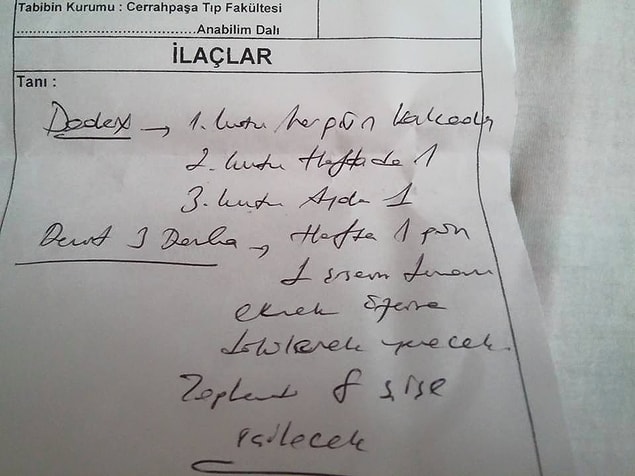 Tabibin Kurumu : Cerrahpaşa Tıp Fakültesi
Anabilim Dalı
İLAÇLAR
Tanı :
Dodex → 1. kutu her gün kalçadan
2. kutu Haftada 1
3. kutu Ayda 1
Devit 3 → Hafta 1 gün
1 şişenin tamamı
ekmek üzerine
dökülerek yenecek.
Toplam 8 şise
içilecek